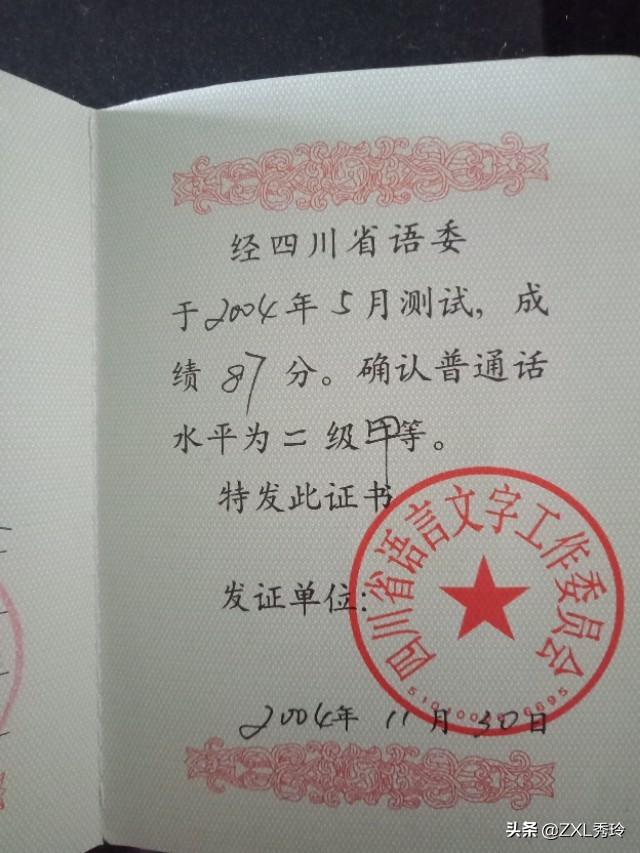 经四川省语委
于2004年5月测试，成
绩87分。确认普通话
水平为二级甲等。
特发此证书
发证单位：
四川省语言文字工作委员会
2004年11月30日
头条@ZXL秀玲